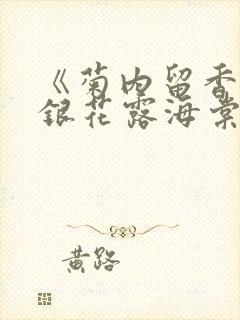 《菊内留香
银花露海棠
黄路